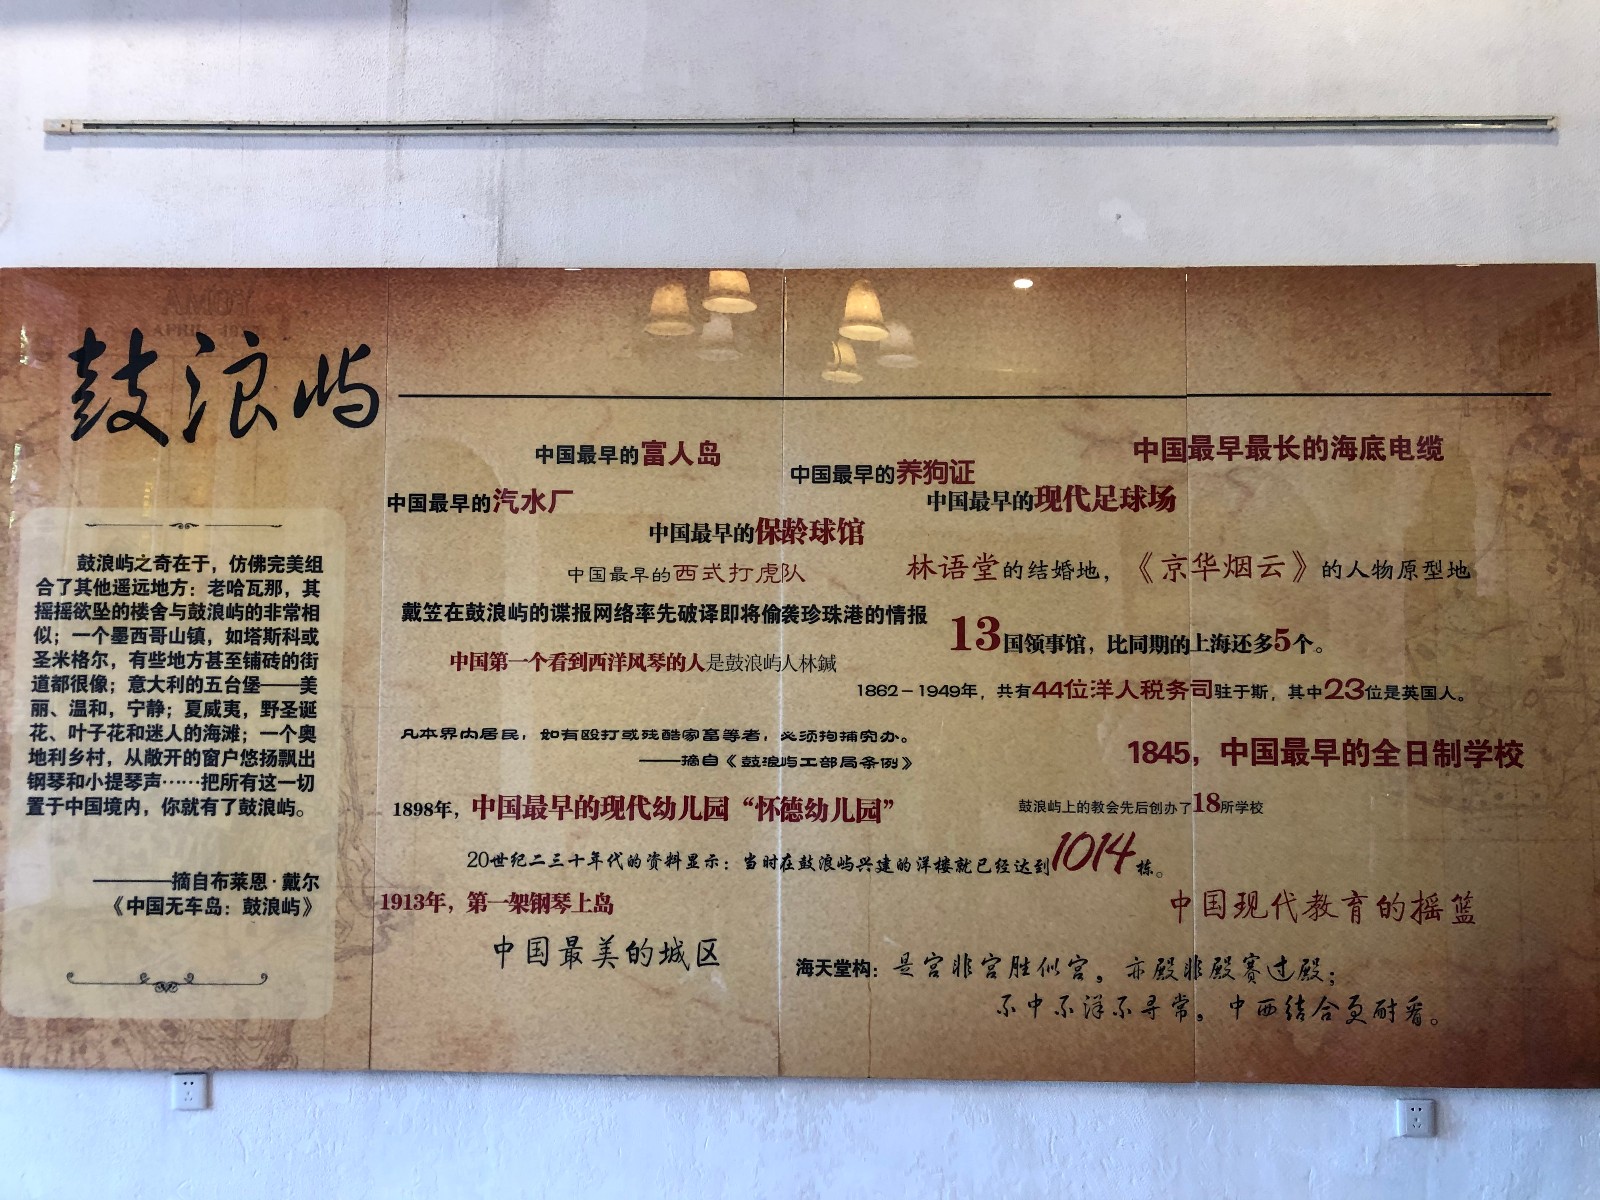 鼓浪屿
鼓浪屿之奇在于，仿佛完美组
合了其他遥远地方：老哈瓦那，其
摇摇欲坠的楼舍与鼓浪屿的非常相
似；一个墨西哥山镇，如塔斯科或
圣米格尔，有些地方甚至铺砖的街
道都很像；意大利的五台堡——美
丽、温和，宁静；夏威夷，野圣诞
花、叶子花和迷人的海滩；一个奥
地利乡村，从敞开的窗户悠扬飘出
钢琴和小提琴声……把所有这一切
置于中国境内，你就有了鼓浪屿。
————摘自布莱恩·戴尔
《中国无车岛：鼓浪屿》
中国最早的富人岛
中国最早的养狗证
中国最早最长的海底电缆
中国最早的汽水厂
中国最早的现代足球场
中国最早的保龄球馆
中国最早的西式打虎队
林语堂的结婚地，《京华烟云》的人物原型地
戴笠在鼓浪屿的谍报网络率先破译即将偷袭珍珠港的情报
13国领事馆，比同期的上海还多5个。
中国第一个看到西洋风琴的人是鼓浪屿人林鍼
1862－1949年，共有44位洋人税务司驻于斯，其中23位是英国人。
凡本界内居民，如有殴打或残酷家畜等者，必须拘捕究办。
——摘自《鼓浪屿工部局条例》
1845，中国最早的全日制学校
1898年，中国最早的现代幼儿园“怀德幼儿园”
鼓浪屿上的教会先后创办了18所学校
20世纪二三十年代的资料显示：当时在鼓浪屿兴建的洋楼就已经达到1014栋。
1913年，第一架钢琴上岛
中国现代教育的摇篮
中国最美的城区
海天堂构：是宫非宫胜似宫，亦殿非殿赛过殿；
不中不洋不寻常，中西结合更耐看。